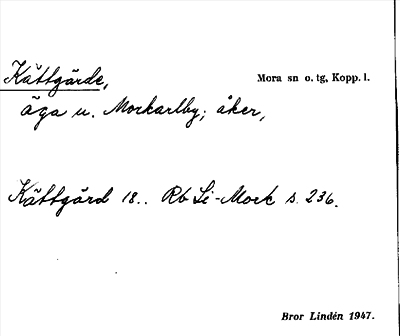 Kättgärde, Mora sn o. tg, Kopp. l.
äga u. Morkarlby; åker,
Kättgård 18.. Rb Li-Mock s. 236.
Bror Lindén 1947.